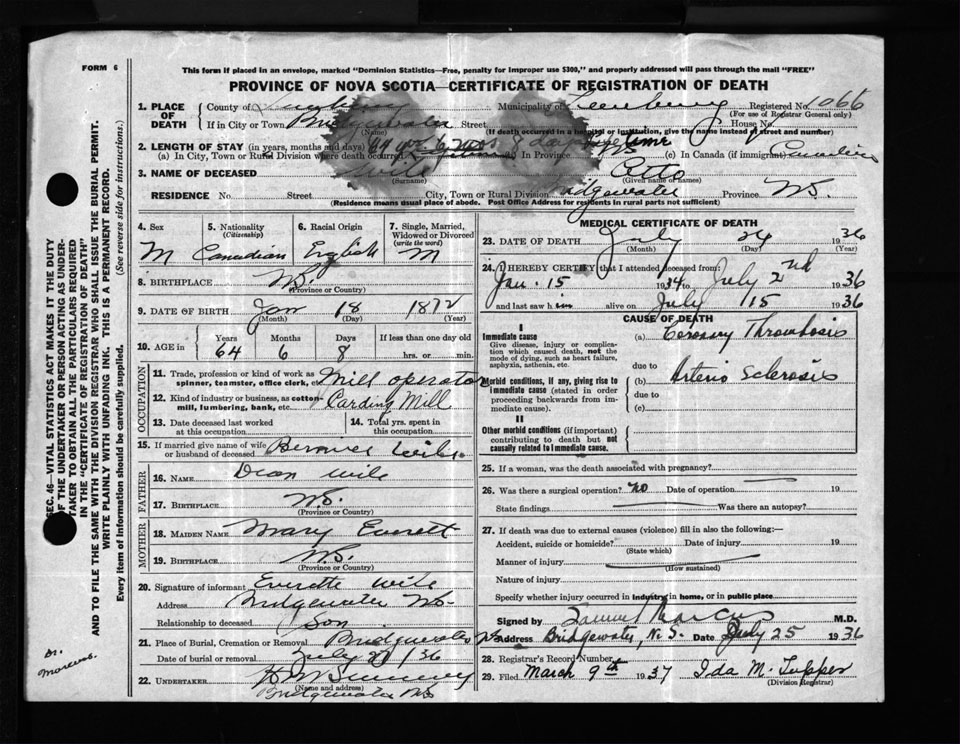 FORM 6
This form if placed in an envelope, marked "Dominion Statistics—Free, penalty for improper use $300," and properly addressed will pass through the mail "FREE"
PROVINCE OF NOVA SCOTIA—CERTIFICATE OF REGISTRATION OF DEATH
1. PLACE OF DEATH County of Municipality of Lunenburg Registered No. 1066
(For use of Registrar General only)
If in City or Town Bridgewater Street House No.
(Name) (If death occurred in a hospital or institution, give the name instead of street and number)
2. LENGTH OF STAY (in years, months and days) 64 yrs 6 mos 8 days
(a) In City, Town or Rural Division where death occurred In Province (c) In Canada (if immigrant)
3. NAME OF DECEASED Wile Otto
(Surname) (Given name or names)
RESIDENCE No. Street City, Town or Rural Division Bridgewater Province N.S.
(Residence means usual place of abode. Post Office Address for residents in rural parts not sufficient)
4. Sex 5. Nationality 6. Racial Origin 7. Single, Married, Widowed or Divorced
(Citizenship) (write the word)
M Canadian English M
8. BIRTHPLACE N.S.
(Province or Country)
9. DATE OF BIRTH Jan 18 1872
(Month) (Day) (Year)
10. AGE in Years Months Days If less than one day old
64 6 8 hrs. or min.
OCCUPATION
11. Trade, profession or kind of work as spinner, teamster, office clerk, Mill operator
12. Kind of industry or business, as cotton-mill, lumbering, bank, etc. Carding Mill
13. Date deceased last worked at this occupation 14. Total yrs. spent in this occupation
15. If married give name of wife or husband of deceased Wile
FATHER
16. NAME Dean Wile
17. BIRTHPLACE N.S.
(Province or Country)
MOTHER
18. MAIDEN NAME Mary Everett
19. BIRTHPLACE N.S.
(Province or Country)
20. Signature of informant Everette Wile
Address Bridgewater N.S.
Relationship to deceased Son
21. Place of Burial, Cremation or Removal Bridgewater N.S.
Date of burial or removal July /36
22. UNDERTAKER
(Name and address)
Bridgewater N.S.
MEDICAL CERTIFICATE OF DEATH
23. DATE OF DEATH July 24 1936
(Month) (Day)
24. I HEREBY CERTIFY that I attended deceased from:
Jan. 15 1934 to July 2nd 1936
and last saw him alive on July 15 1936
CAUSE OF DEATH
I
Immediate cause (a) Coronary Thrombosis
Give disease, injury or complication which caused death, not the mode of dying, such as heart failure, asphyxia, asthenia, etc.
due to
Morbid conditions, if any, giving rise to immediate cause (stated in order proceeding backwards from immediate cause).
(b) Arterio Sclerosis
due to
(c)
II
Other morbid conditions (if important) contributing to death but not causally related to immediate cause.
25. If a woman, was the death associated with pregnancy?
26. Was there a surgical operation? no Date of operation 19
State findings Was there an autopsy?
27. If death was due to external causes (violence) fill in also the following:-
Accident, suicide or homicide? Date of injury 19
(State which)
Manner of injury
(How sustained)
Nature of injury
Specify whether injury occurred in industry, in home, or in public place
Signed by Marcus M.D.
Address Bridgewater, N.S. Date July 25 1936
28. Registrar's Record Number
29. Filed March 9th 1937 Ida M. Tupper
(Division Registrar)
SEC. 46—VITAL STATISTICS ACT MAKES IT THE DUTY
OF THE UNDERTAKER OR PERSON ACTING AS UNDER-
TAKER TO OBTAIN ALL THE PARTICULARS REQUIRED
IN THE "CERTIFICATE OF REGISTRATION OF DEATH"
AND TO FILE THE SAME WITH THE DIVISION REGISTRAR WHO SHALL ISSUE THE BURIAL PERMIT.
WRITE PLAINLY WITH UNFADING INK. THIS IS A PERMANENT RECORD.
Every item of Information should be carefully supplied. (See reverse side for instructions.)
Dr. Marcus.